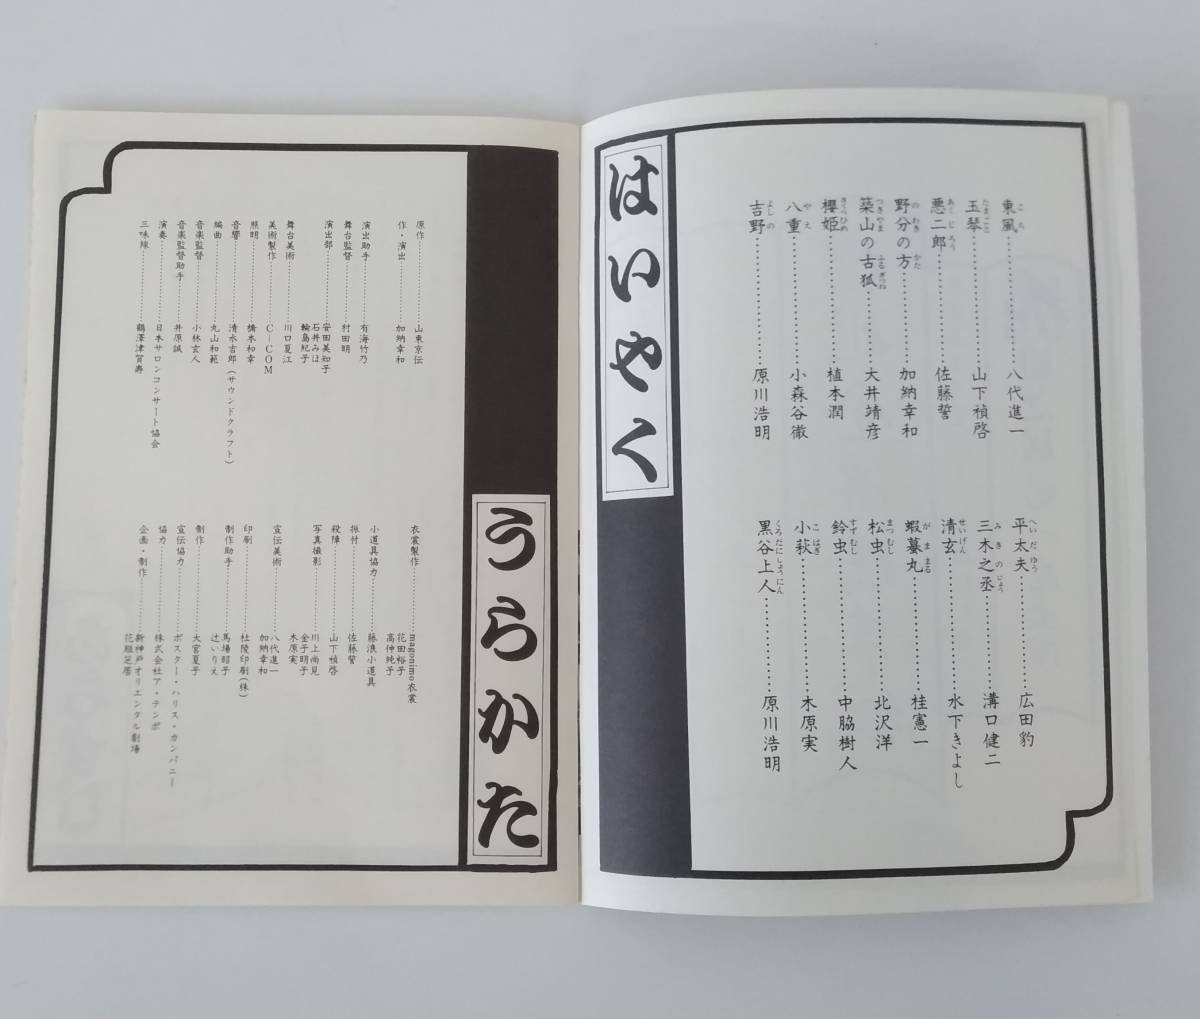 はいやく
東風……………八代進一
玉琴……………山下禎啓
悪二郎……………佐藤誓
野分の方……………加納幸和
築山の古狐……………大井靖彦
櫻姫……………植本潤
八重……………小森谷徹
吉野……………原川浩明
平太夫……………広田豹
三木之丞……………溝口健二
清玄……………水下きよし
蝦蟇丸……………桂憲一
松虫……………北沢洋
鈴虫……………中脇樹人
小萩……………木原実
黒谷上人……………原川浩明
うらかた
原作……………山東京伝
作・演出……………加納幸和
演出助手……………有海竹乃
舞台監督……………村田明
演出部……………安田美知子
石井みほ
輪島紀子
舞台美術……………川口夏江
美術製作……………C-COM
照明……………橋本和幸
音響……………清水吉郎(サウンドクラフト)
編曲……………丸山和範
音楽監督……………小林玄人
音楽監督助手……………井原誠
演奏……………日本サロンコンサート協会
三味線……………鶴澤津賀寿
衣裳製作……………magonimo衣裳
花田裕子
高仲純子
小道具協力……………藤浪小道具
振付……………佐藤誓
殺陣……………山下禎啓
写真撮影……………川上尚見
金子明子
木原実
宣伝美術……………八代進一
加納幸和
印刷……………杜陵印刷(株)
制作助手……………馬場昭子
辻いりえ
制作……………大宮夏子
宣伝協力……………ポスター・ハリス・カンパニー
協力……………株式会社ア・テンポ
企画・制作……………新神戸オリエンタル劇場
花組芝居